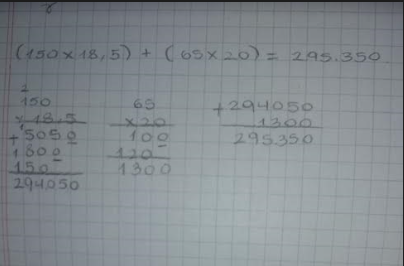 (150 x 18,5) + (65 x 20) = 295.350
2
150
x 18,5
+5050
1800
150
294050
65
x20
100
120
1300
+294050
1300
295.350